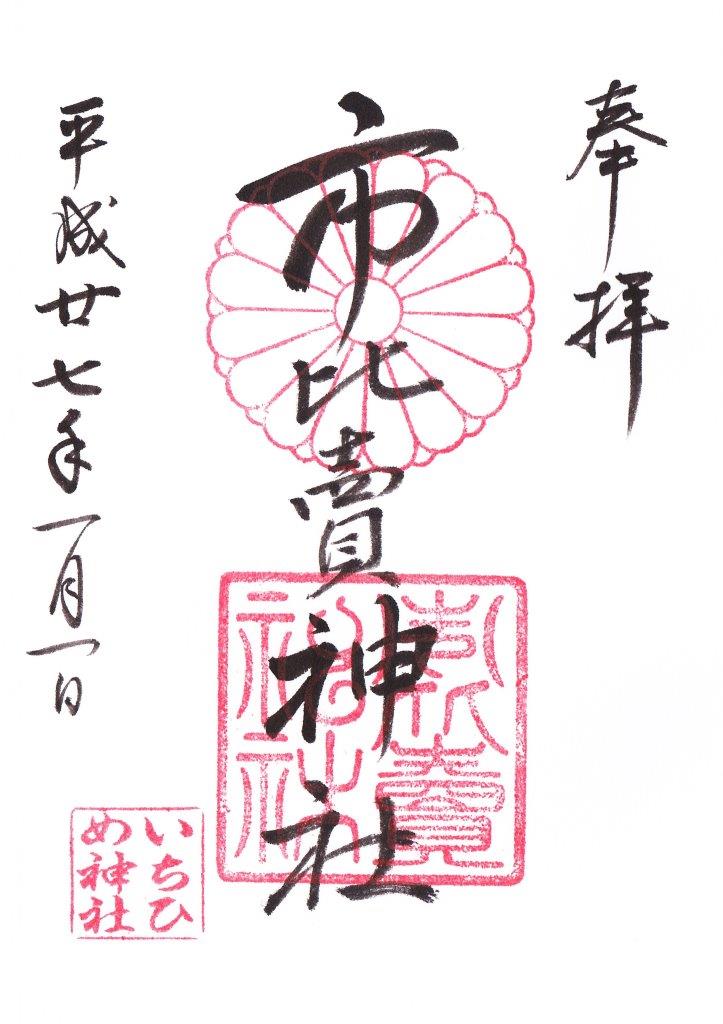 奉拝
市比賣神社
平成廿七年一月一日
いちひ
め神社